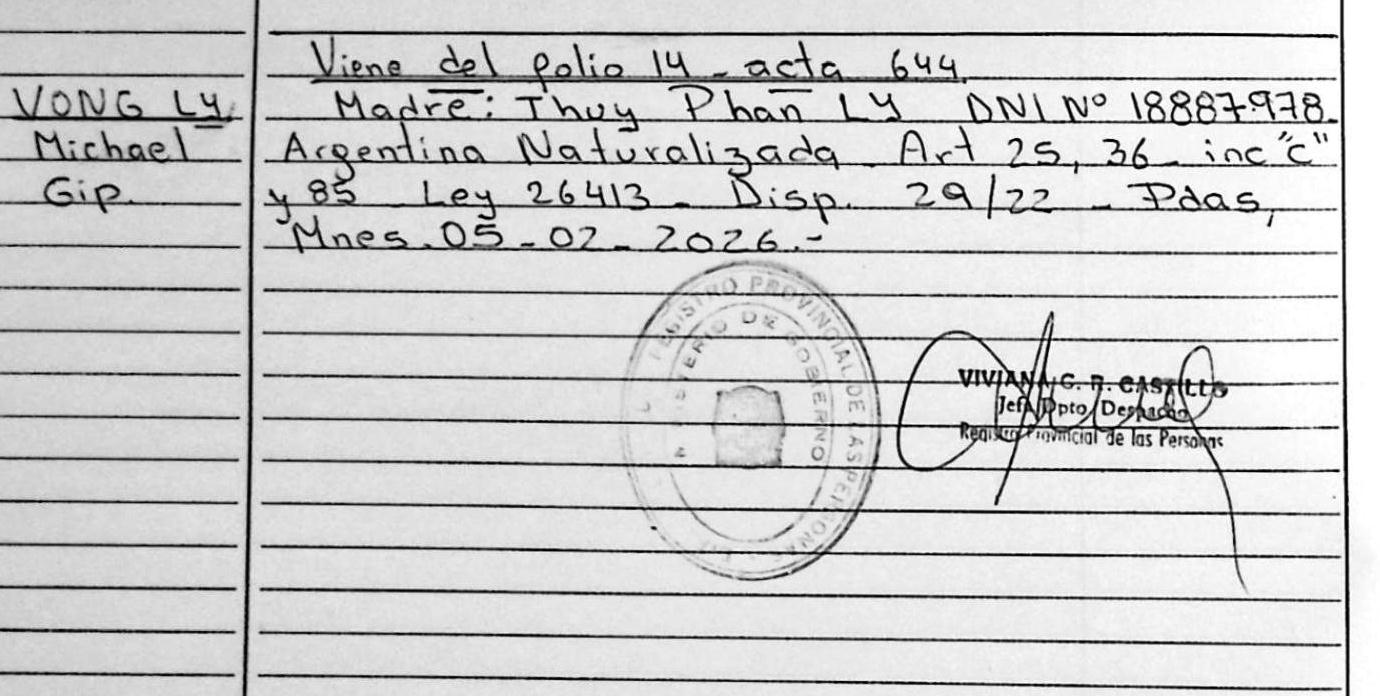 Viene del folio 14 - acta 644.
VONG LY
Michael
Gip.
Madre: Thuy Phan LY DNI Nº 18887.978.
Argentina Naturalizada - Art 25, 36 - inc "c"
y 85 - Ley 26413 - Disp. 29/22 - Pdas,
Mnes. 05-02-2026.-
REGISTRO PROVINCIAL DE LAS PERSONAS
MINISTERIO DE GOBIERNO
VIVIANA G. R. CASTILLO
Jefa Dpto Despacho
Registro Provincial de las Personas